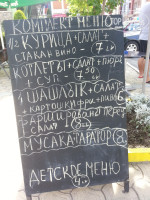 КОМПЛЕКТ МЕНЮ
1/2 КУРИЦА + САЛАТ +
СТАКАН ВИНО - 7 лв
КОТЛЕТЫ + САЛАТ + ПЮРЕ
1 СУП - 7.50
ШАШЛЫК + САЛАТ
+ КАРТОШКИ ФРИ + ПИВО
ФАРШИРОВАНЫ ПЕРЦЫ
САЛАТ
МУСАКА + ТАРАТОР 8
ДЕТСКОЕ МЕНЮ
4 лв